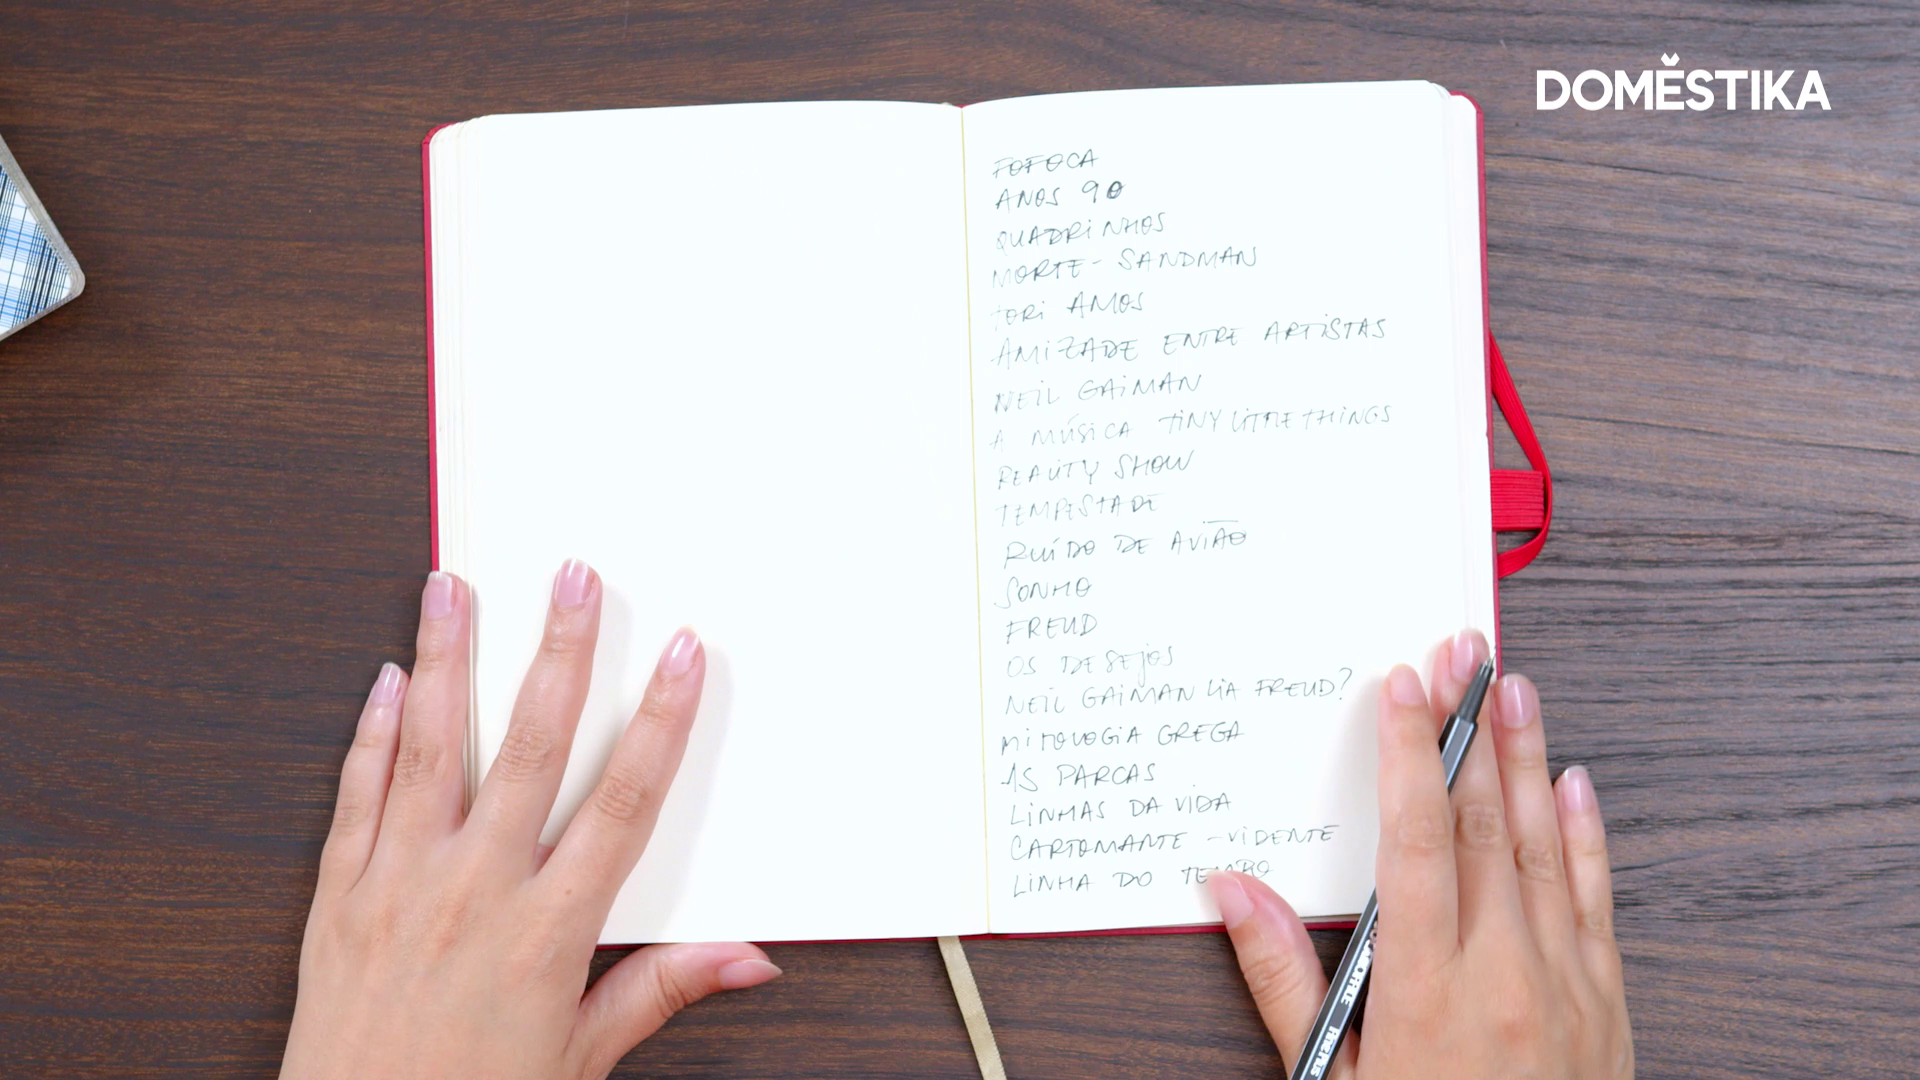 DOMĚSTIKA
FOFOCA
ANOS 90
QUADRINHOS
MORTE - SANDMAN
TORI AMOS
AMIZADE ENTRE ARTISTAS
NEIL GAIMAN
A MÚSICA TINY LITTLE THINGS
REALITY SHOW
TEMPESTADE
RUÍDO DE AVIÃO
SONHO
FREUD
OS DESEJOS
NEIL GAIMAN LIA FREUD?
MITOLOGIA GREGA
AS PARCAS
LINHAS DA VIDA
CARTOMANTE - VIDENTE
LINHA DO TEMPO